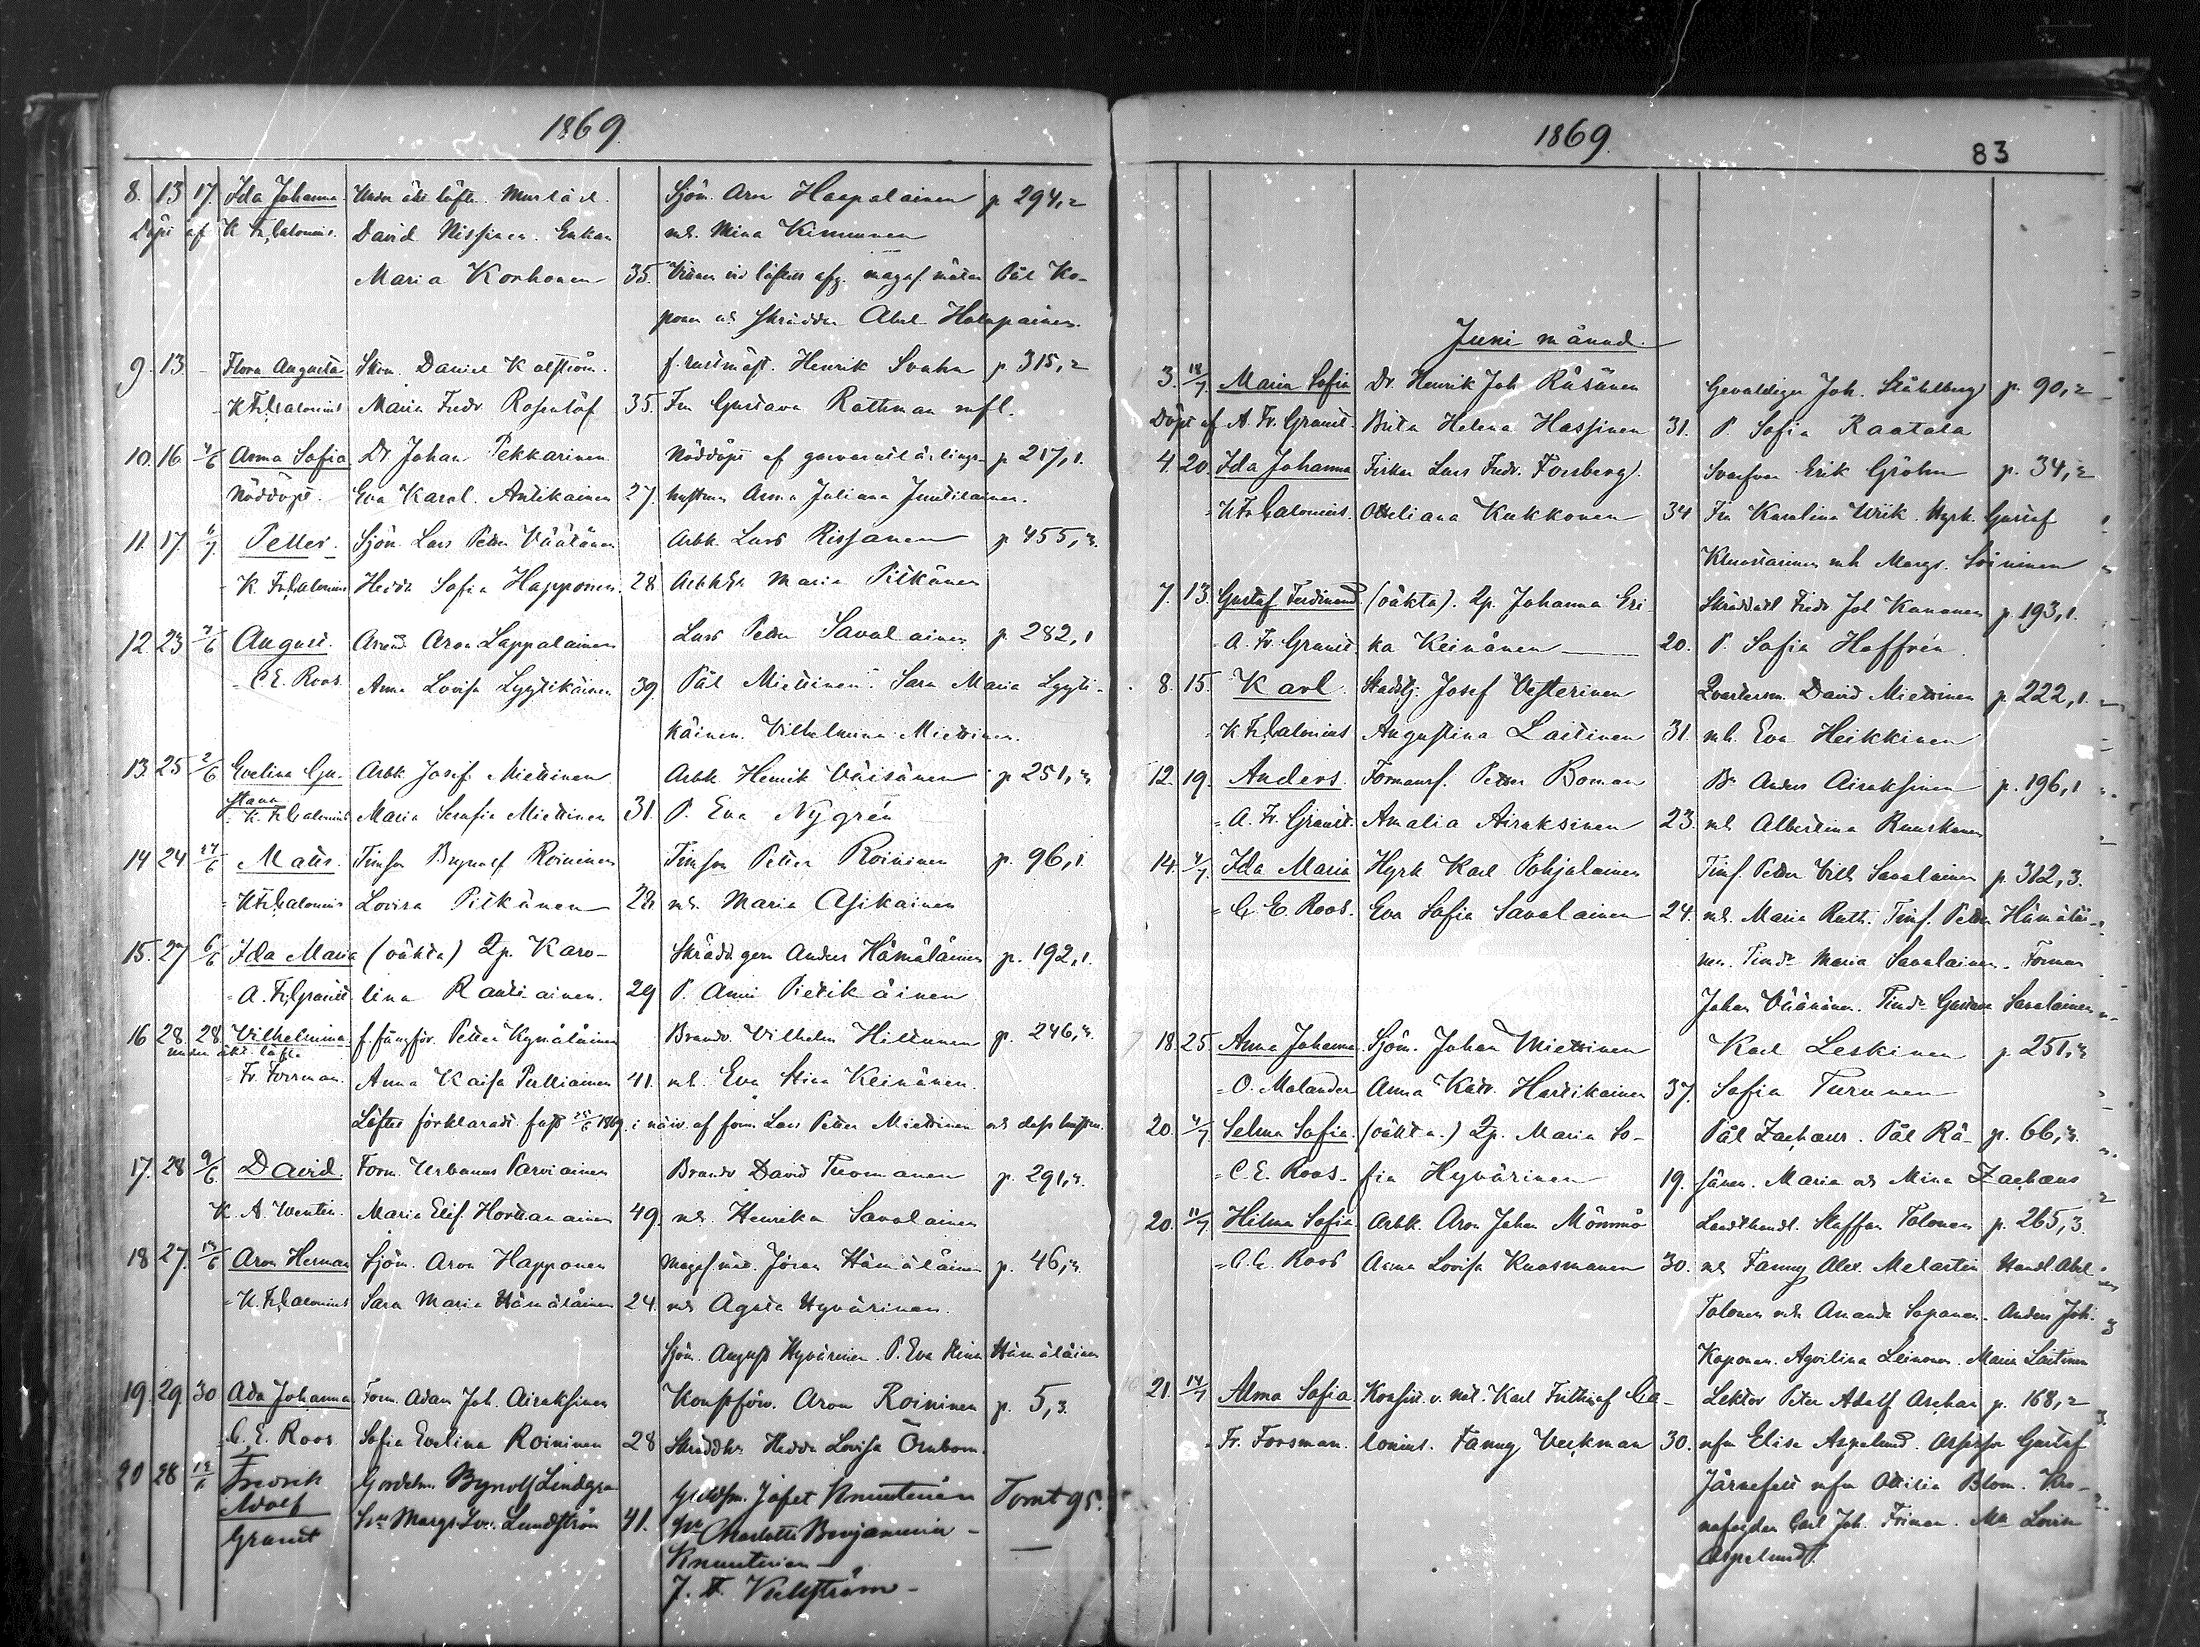 1869.
8. 13 17. Ida Johanna Under äkt. löfte. Murläsl. Sjöm. Aron Haapalainen p 294,2
Döpt af K. Fr. Calonius. David Nissinen. Enkan och Mina Kinnunen
Maria Korhonen 35. Vittnen vid löftets afg. magaf. mätar Pål Ko-
ponen och skräddar Abel Halapainen.
9. 13 - Flora Augusta Skom. Daniel Kalström. f. rustmäst. Henrik Svahn p. 315,2
- K. Fr. Calonius Maria Fredr. Rosenlöf 35. Fru Gustava Rothman m.fl.
10. 16 4/6 Anna Sofia Dr. Johan Pekkarinen Nöddöpt af p 217,1.
Nöddöpt. Eva Karol. Antikainen 27. hustrun Anna Juliana Juntilainen.
11. 17. 11/7. Petter. Sjöm. Lars Petter Väätänen Arbk. Lars Rissanen p 455,3.
- K. Fr. Calonius Hedda Sofia Happonen. 28. Arbk. Maria Pitkänen
12. 23 2/6 August. Aron Lappalainen Lars Petter Savolainen p. 282,1
- C. E. Roos. Anna Lovisa Lyytikäinen 39. Pål Miettinen. Sara Maria Lyyti-
käinen. Vilhelmina Miettinen.
13. 25 2/6 Evelina Gu- Arbk. Josef Miettinen Arbk. Henrik Väisänen p 251,3
stava
- K. Fr. Calonius Maria Serafia Miettinen 31. P. Eva Nygrén
14 24 24/6 Mats. Timf. Brynolf Roininen Timf. Petter Roininen p. 96,1
- K. Fr. Calonius Lovisa Pitkänen 28. och Maria Asikainen
15. 27 6/6 Ida Maria (oäkta) Qp. Karo- Skrädd.gers. Anders Hämäläinen p. 192,1.
- A. Fr. Granit lina Rautiainen. 29 P. Anni Pietikäinen
16 28. 28. Vilhelmina. f. fångför. Petter Kynäläinen Brandv. Vilhelm Hiltunen p. 246,3
under äkt. löfte
- Fr. Forsman. Anna Kaisa Pulliainen 41. och Eva Stina Keinänen.
Löftet förklaradt fast 25/5 1869. i närv. af form. Lars Petter Miettinen och dess hustru.
17. 28 9/6 David. Form. Urbanus Parviainen Brandv. David Tuomanen p. 291,3.
K. A. Wentin. Maria Elis. Hornanainen 49. och Henrika Savolainen
18 27. 13/6 Aron Herman Sjöm. Aron Happonen Jöran Hämäläinen p. 46,3.
- K. Fr. Calonius Sara Maria Hämäläinen 24. och Agata Hyvärinen.
Sjöm. August Hyvärinen. P. Eva Stina Hämäläinen
19. 29. 30 Ada Johanna Form. Adam Joh. Airaksinen Konstförv. Aron Roininen p. 5,3.
- C. E. Roos. Sofia Evelina Roininen 28 Hedda Lovisa Örnbom.
20 28 13/6 Fredrik Gördelm. Brynolf Lindgren Guldsm. Jafet Knuuterien Tomt 95.
Adolf
Granit Margr. Lov. Lundström 41. Charlotta Benjaminia -
Knuuterien -
J. F. Kihlström -
1869.
83
Juni månad.
3. 18/7. Maria Sofia Dr. Henrik Joh. Räsänen Gevaldiger Joh. Ståhlberg p. 90,2
Döpt af A. Fr. Granit. Brita Helena Hassinen 31. P. Sofia Raatala
4. 20. Ida Johanna Fiskar Lars Fredr. Forsberg. Svarfvar Erik Gröhn p. 34,2.
- K. Fr. Calonius. Otteliana Kukkonen 34 Fru Karolina Wrik. Hyrk. Gustaf
Kluustarinen och Margr. Soininen
7. 13. Gustaf Ferdinand. (oäkta). Qp. Johanna Eri- Fredr. Joh. Kananen p. 193,1.
- A. Fr. Granit. ka Keinänen 20. P. Sofia Hoffrén.
8. 15. Karl. Stadstj. Josef Vesterinen Qvarterm. David Miettinen p. 222,1.
- K. Fr. Calonius Augustina Laitinen 31. och Eva Heikkinen
12. 19. Anders. Formansf. Petter Boman Anders Airaksinen p. 196,1
- A. Fr. Granit. Amalia Airaksinen 23. och Albertina Ruuskanen
14. 4/7. Ida Maria Hyrk. Karl Pohjalainen Timf. Petter Vilh. Savolainen p. 312,3.
- C. E. Roos. Eva Sofia Savolainen 24. och Maria Ruth. Timf. Petter Hämäläi-
nen. Timdr. Maria Savolainen. Forman
Johan Väänänen. Timdr. Gustava Savolainen
18. 25. Anna Johanna. Sjöm. Johan Miettinen Karl Leskinen p 251,3
- O. Molander Anna Katr. Hartikainen 37. Sofia Turunen
20. 4/7 Selma Sofia. (oäkta.) Qp. Maria So- Pål Zachæus. Pål Rä- p. 66,3.
- C. E. Roos. fia Hyvärinen 19. sänen. Maria och Mina Zachæus
20. 11/7 Hilma Sofia Arbk. Aron Johan Mömmö Landthandl. Staffan Tolonen p. 265,3.
- C. E. Roos Anna Lovisa Kuosmanen 30. och Fanny Alex. Melartin Handl. Abel
Tolonen och Amanda Soponen. Anders Joh.
Koponen. Aqvilina Leinonen. Maria Laitinen
21. 14/7 Alma Sofia. Konsist. v. not. Karl Frithiof Ca- Lektor Peter Adolf Aschan p. 168,2
- Fr. Forsman. lonius. Fanny Veckman 30. Elise Aspelund. Assessor Gustaf
Järnefelt Ottilia Blom. Kro-
nofogden Carl Joh. Friman. Lovisa
Aspelund.